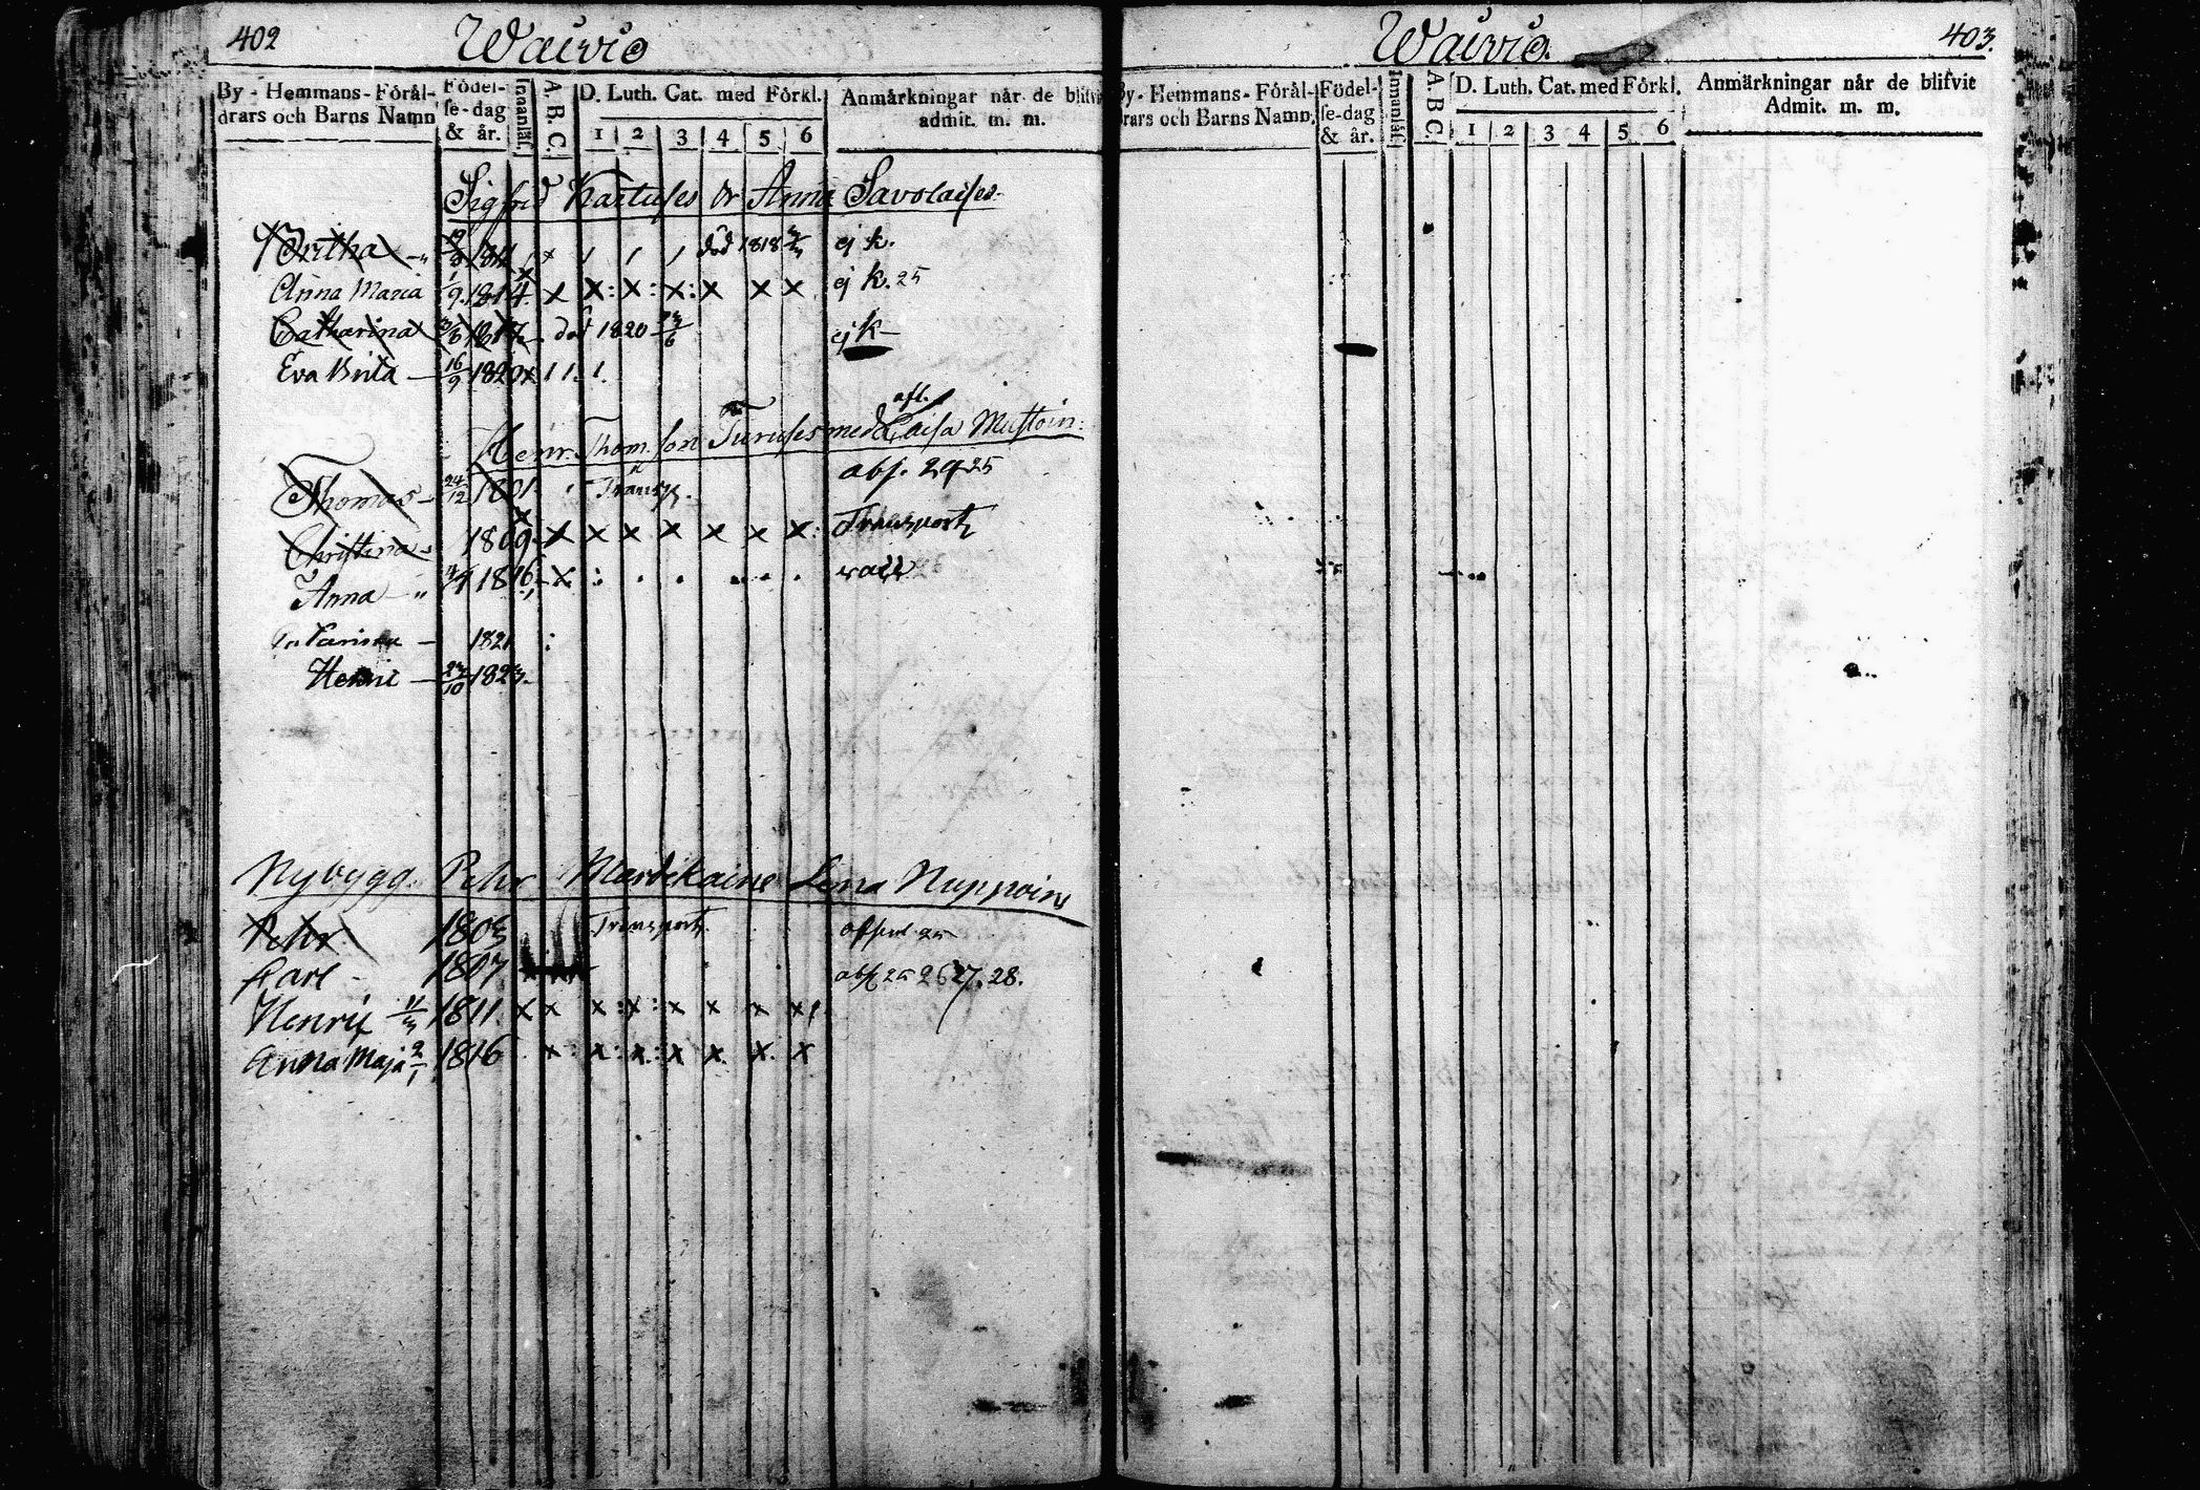 402 Waivio
By-Hemmans-Föräl-
drars och Barns Namn
Födel-
se-dag
& år.
Innanläs.
A. B. C.
D. Luth. Cat. med Förkl.
1 2 3 4 5 6
Anmärkningar når de blifvit
admit. m. m.
Sigfrid Anna Savolaises
Britha 18 död 1818 ej k.
Anna Maria 1/9 1814. x x: x: x: x x x ej k. 25
Catharina 1817 död 1820 23/6 ej k
Eva Brita 16/9 1820 x 1 1. 1.
afl.
Henr. Thom. son Turuses med Caisa Mustoin:
Thomas 24/12 1801. Transp. abs. 24 25
Christina 1809 x x x x x x x: Transport
Anna 1816 x
1821 :
Henric 23/10 1823.
Nybygg. Pehr Mardikaine Lena Nuppoin
Pehr 1803 Transport 25
Carl 1807 abs 25 26 27. 28.
Henric 11/3 1811. x x x: x: x x x x
Anna Maja 2/1 1816 x: x: x: x x. x. x
Waivio. 403.
By-Hemmans-Föräl-
drars och Barns Namn.
Födel-
se-dag
& år.
Innanläs.
A. B C.
D. Luth. Cat. med Förkl.
1 2 3 4 5 6
Anmärkningar når de blifvit
Admit. m. m.